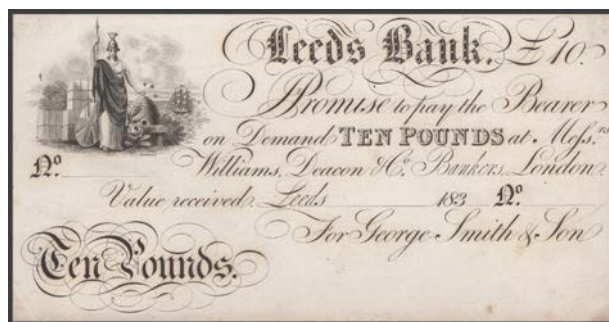 Leeds Bank. £10.
Promise to pay the Bearer
on Demand TEN POUNDS at Mess.rs
Williams, Deacon & Co. Bankers, London.
No.
Value received. Leeds 183 No.
For George Smith & Son
Ten Pounds.